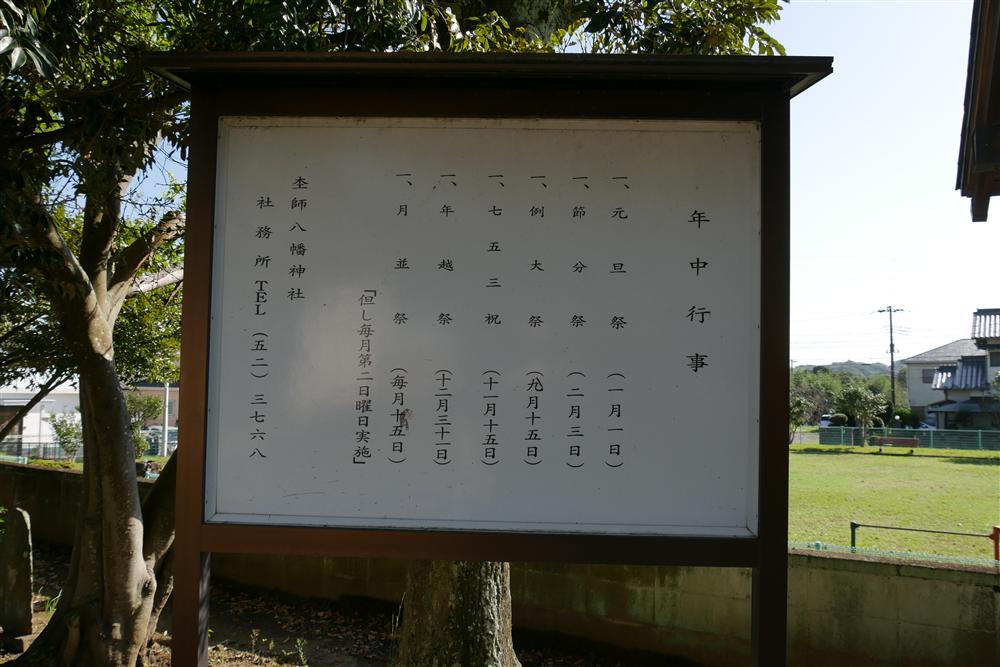 年中行事
一、元旦祭（一月一日）
一、節分祭（二月三日）
一、例大祭（九月十五日）
一、七五三祝（十一月十五日）
一、年越祭（十二月三十一日）
一、月並祭（毎月十五日）
「但し毎月第二日曜日実施」
杢師八幡神社
社務所TEL（五二）三七六八